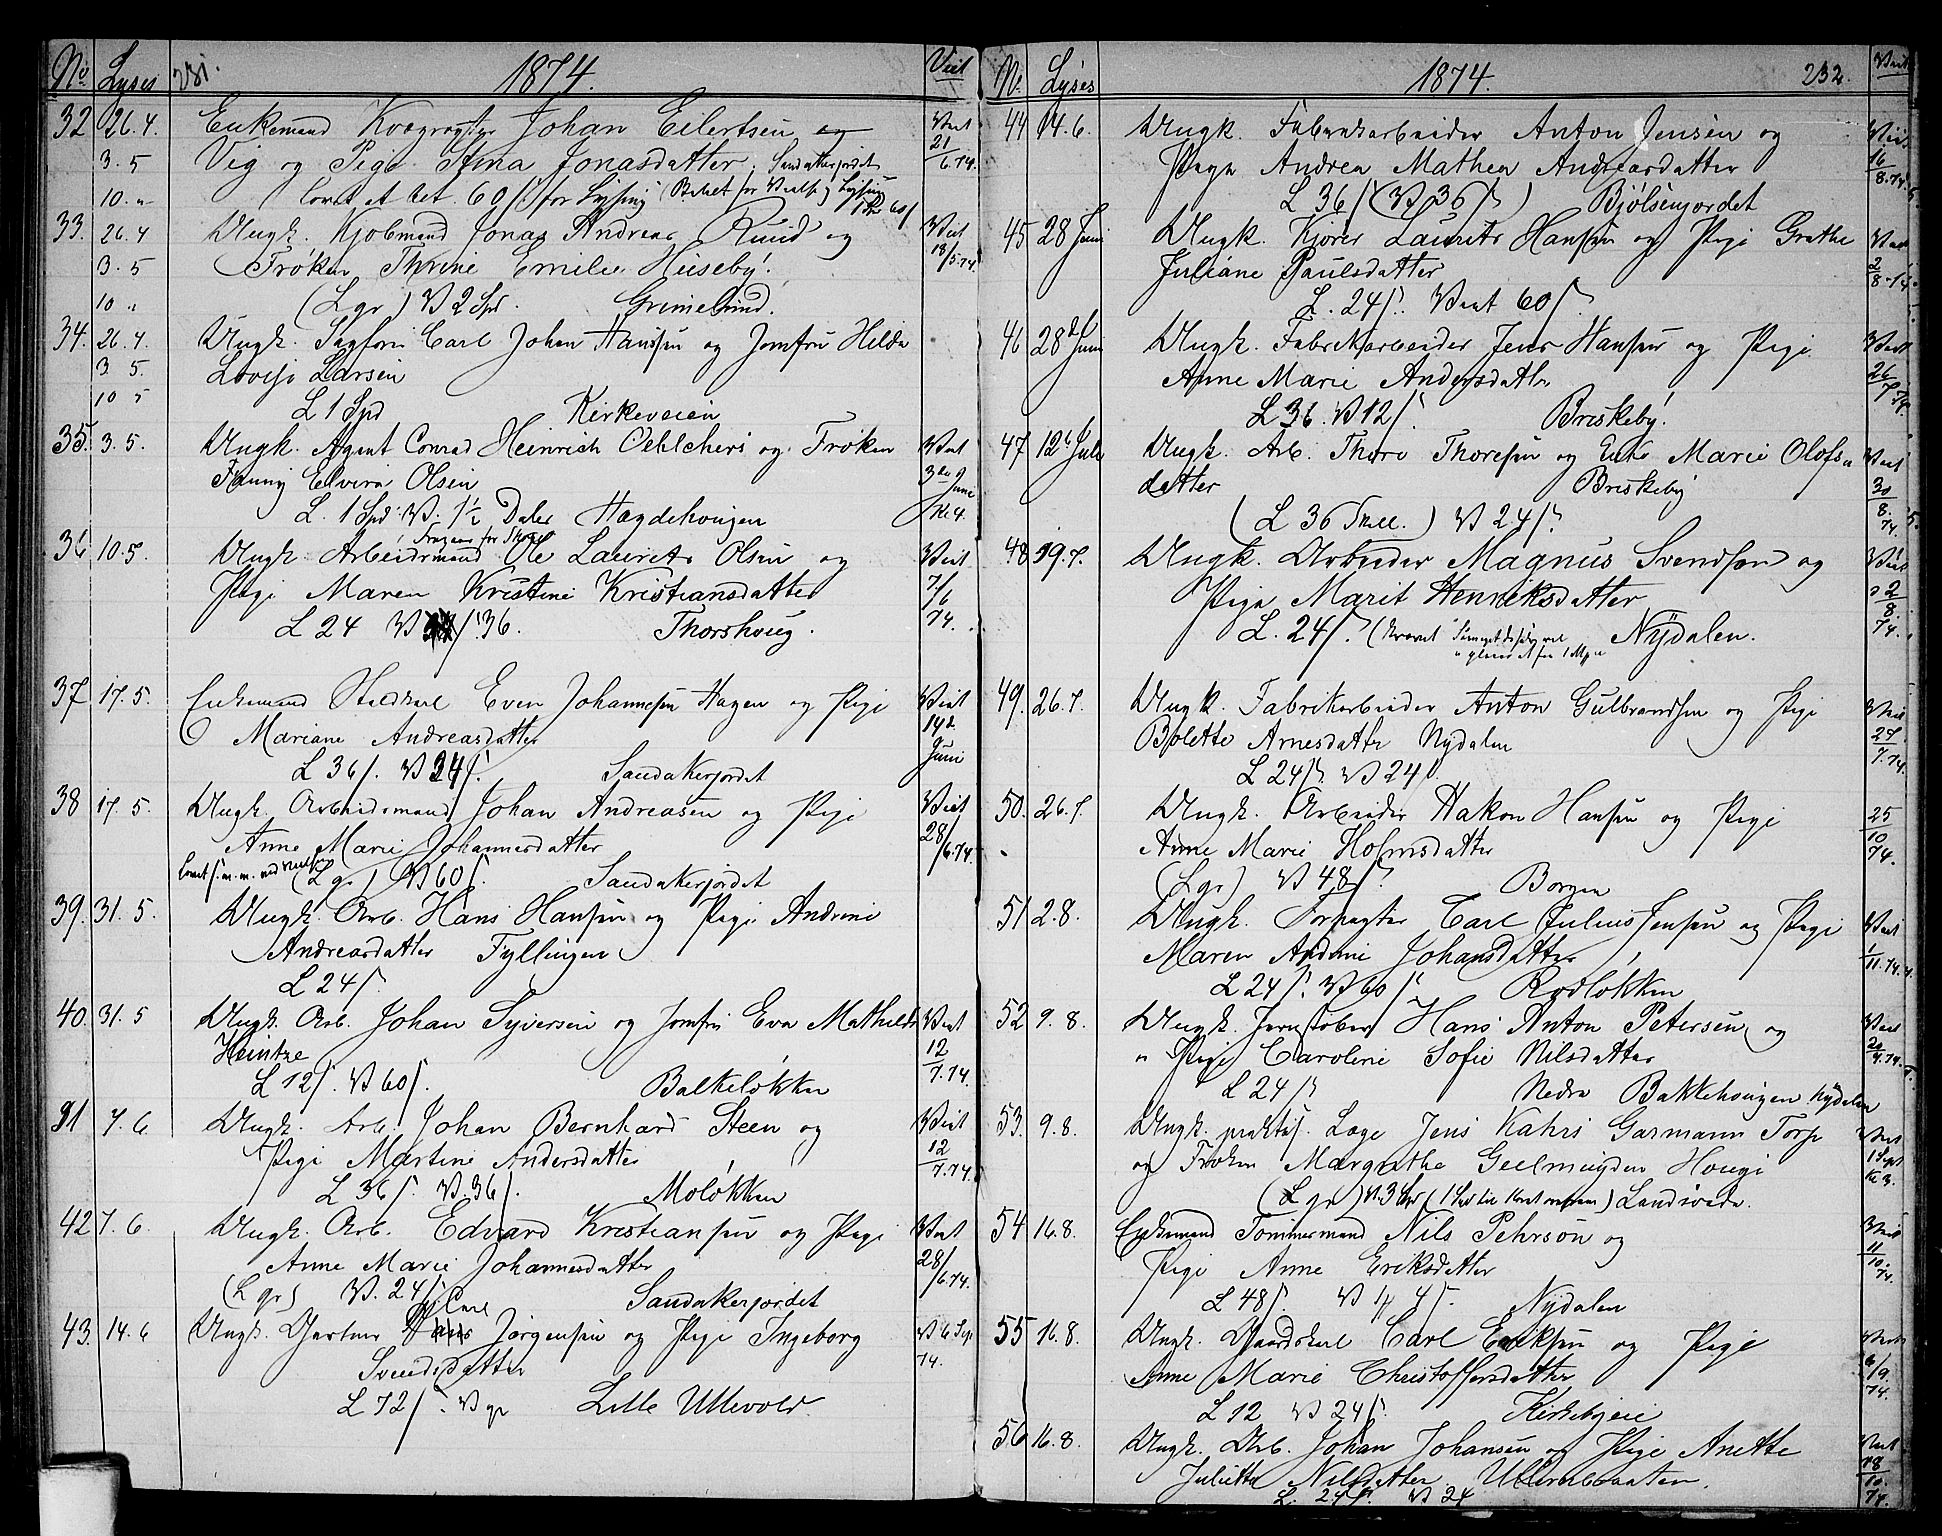 No Lyses 231. 1874. Viet
32 26.4. Enkemand Kvægrøgter Johan Eilertsen og Viet 21/6.74.
3.5 Vig og Pige Stina Jonasdatter, Sandakerjordet
10. " lovet at bet. 60 ß for Lysing (Betalt for Vielse og Lysing 1 Spd 60 ß
33. 26.4 Ungk. Kjøbmand Jonas Andreas Ruud og Viet 13/5.74.
3.5 Frøken Thrine Emilie Huseby.
10 " (L gr) V 2 Spd. Grimelund.
34. 26.4. Ungk. Sagfører Carl Johan Hanssen og Jomfru Hilda
3. 5. Lovise Larsen
10 5 L 1 Spd Kirkeveien
35. 3.5. Ungk. Agent Conrad Heinrich Oehlchers og Frøken Viet
Fanny Elvira Olsen 3de Juni
L. 1 Spd V. 1½ Daler Hægdehougen Kl 4.
36 10.5. Ungk. Arbeidsmand Ole Laurits Olsen og Viet
Pige Maren Kristine Kristiansdatter 7/6
L 24 V ß 36. Thorshoug. 74.
37 17.5. Enkemand Staldkarl Even Johannesen Hagen og Pige Viet
Mariane Andreasdatter 14de Juni
L 36 ß. V 24 ß. Sandakerjordet
38 17.5. Ungk. Arbeidsmand Johan Andreasen og Pige Viet
Anne Marie Johannesdatter 28/6.74.
(L gr) V 60 ß. Sandakerjordet
39. 31.5. Ungk. Arb. Hans Hansen og Pige Andrine
Andreasdatter Fyllingen
L 24 ß
40. 31.5 Ungk. Arb. Johan Syversen og Jomfru Eva Mathilde Viet
Heintze 12
L 12 ß. V 60 ß. Balkeløkken 7.74.
41 7.6. Ungk. Arb. Johan Bernhard Steen og Viet
Pige Martine Andersdatter 12/7.74.
L 36 ß. V. 36 ß. Moløkken
42 7.6. Ungk. Arb. Edvard Kristiansen og Pige Viet
Anne Marie Johannesdatter 28/6.74.
(L gr) V. 24 ß Sandakerjordet
Carl
43. 14.6 Ungk. Gartner Hans Jørgensen og Pige Ingeborg V 6 Sep
Svendsdatter 74.
L 72 ß. V gr Lille Ullevold.
No. Lyses 1874. 232. Viet
44 14.6. Ungk. Fabrikarbeider Anton Jensen og Viet
Pige Andrea Mathea Andreasdatter 16/8.74.
L 36 ß (V 36 ß) Bjølsenjordet
45 28 Juni Ungk. Kjører Laurits Hansen og Pige Grethe Viet
Juliane Paulsdatter 2/8-74.
L. 24 ß. Viet 60 ß.
46 28de Juni Ungk. Fabrikarbeider Jens Hansen og Pige Viet
Anne Marie Andersdatter 26/7 74.
L 36. V 12 ß. Briskeby.
47 12te Juli Ungk. Arb. Thore Thoresen og Enke Marie Olofs= Viet
datter Briskeby 30/8.
(L 36 Skill.) V 24 ß. 74.
48 19.7. Ungk. Arbeider Magnus Svendsen og Viet
Pige Marit Henriksdatter 2/8
L. 24 ß. Nydalen. 74.
49. 26.7. Ungk. Fabrikarbeider Anton Gulbrandsen og Pige Viet
Bolette Arnesdatter Nydalen 27/7.74.
L 24 ß. V 24 ß.
50. 26.7. Ungk. Arbeider Hakon Hansen og Pige 25
Anne Marie Holmsdatter 10/74.
(L gr) V 48 ß. Borgen
51 2.8. Ungk. Forpagter Carl Julius Jensen og Pige Viet
Maren Andrine Johansdatter 1/11.74.
L 24 ß. V 60 ß Rodløkken
52 9.8. Ungk. Jernstøber Hans Anton Petersen og Viet
" Pige Caroline Sofie Nilsdatter
L 24 ß Nedre Bakkehougen Nydalen
53. 9.8. Ungk. praktis. Læge Jens Kahrs Garmann Torp Viet
og Frøken Margrethe Geelmuyden Hougi 1 Sept
(L gr) V. 3 Spd Kl 3.
54 16.8. Enkemand Tømmermand Nils Pehrson og Viet
Pige Anne Eriksdatter 11/10.74.
L 48 ß. V Nydalen
55 16.8. Ungk. Gaardskarl Carl Eriksen og Pige Viet
Anne Marie Christoffersdatter 6/9.
L 12 V 24 ß. Kirkebyeie 74.
56 16.8. Ungk. Arb. Johan Johansen og Pige Anette Viet
Juliette Nilsdatter 18/10.
L. 24 ß. V 24 74.